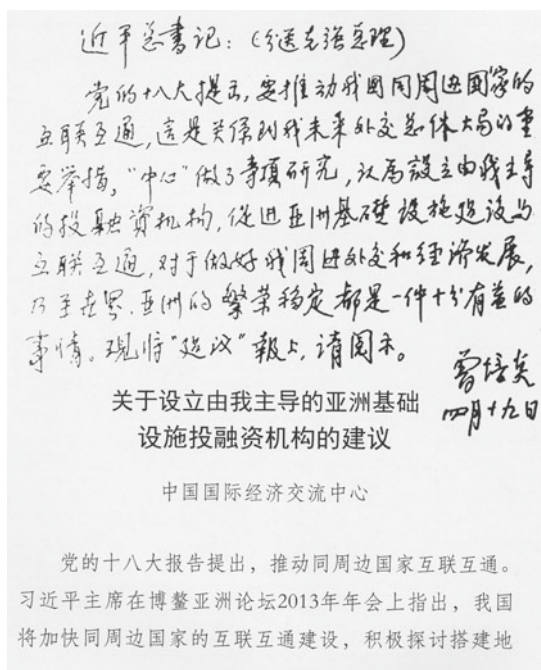 近平总書记：（分送克强总理）
党的十八大提出，要推动我国同周边国家的
互联互通，這是关係到我未来外交总体大局的重
要举措。“中心”做了专项研究，认为設立由我主导
的投融資机构，促进亚洲基礎设施建设与
互联互通，对于做好我周边外交和经济发展，
乃至世界、亚洲的繁荣稳定都是一件十分有益的
事情。现将“建议”報上，请阅示。
曾培炎
四月十九日
关于设立由我主导的亚洲基础
设施投融资机构的建议
中国国际经济交流中心
党的十八大报告提出，推动同周边国家互联互通。
习近平主席在博鳌亚洲论坛2013年年会上指出，我国
将加快同周边国家的互联互通建设，积极探讨搭建地